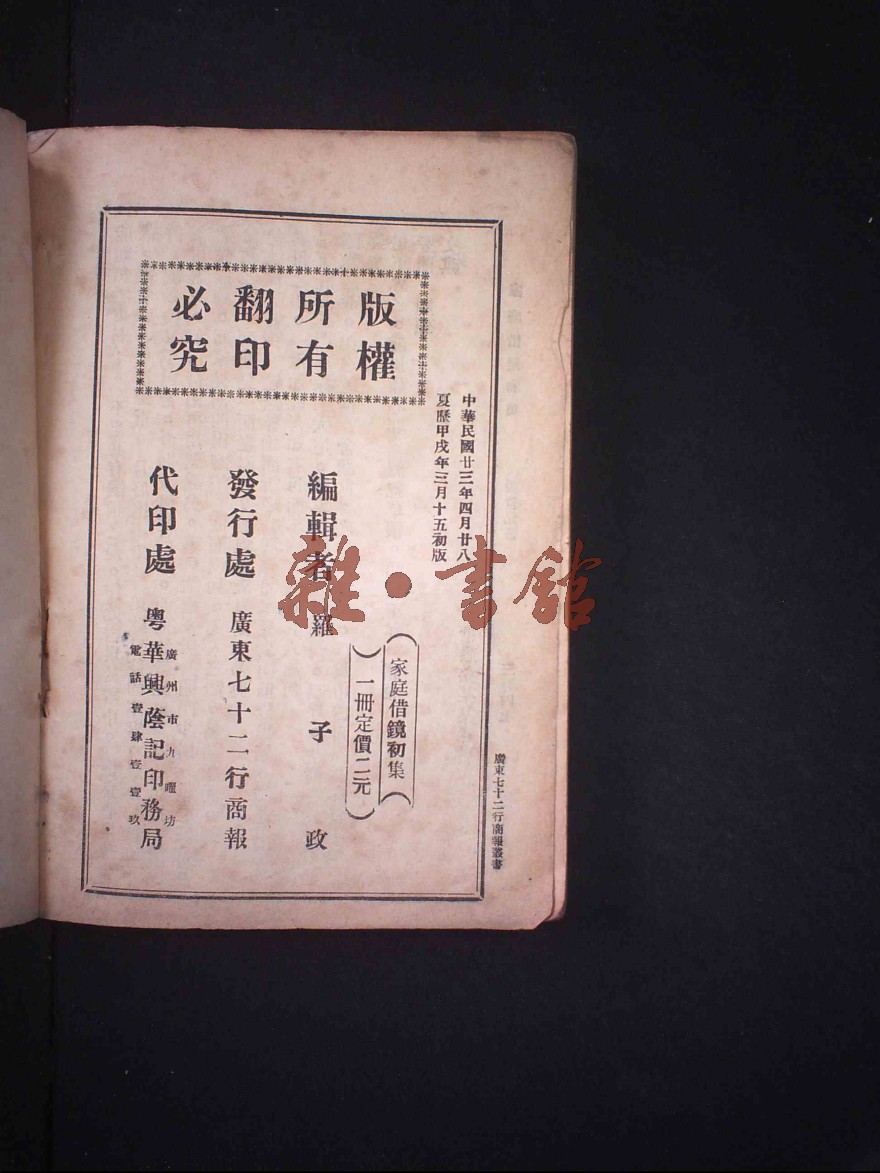 廣東七十二行商報叢書
中華民國廿三年四月廿八
夏歷甲戌年三月十五初版
版權
所有
翻印
必究
家庭借鏡初集
一冊定價二元
編輯者 羅子政
發行處 廣東七十二行商報
代印處 粵華興蔭記印務局
廣州市九曜坊
電話壹肆壹壹玖
雜·書館